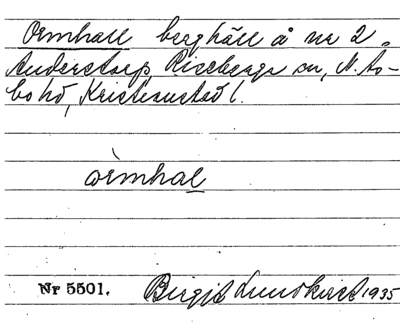 Ormhall berghäll å nr 2
Anderstorp, Riseberga sn, N. Ås-
bo hd, Kristianstad l.
òrmhal
Nr 5501. Birgit Lundkvist 1935